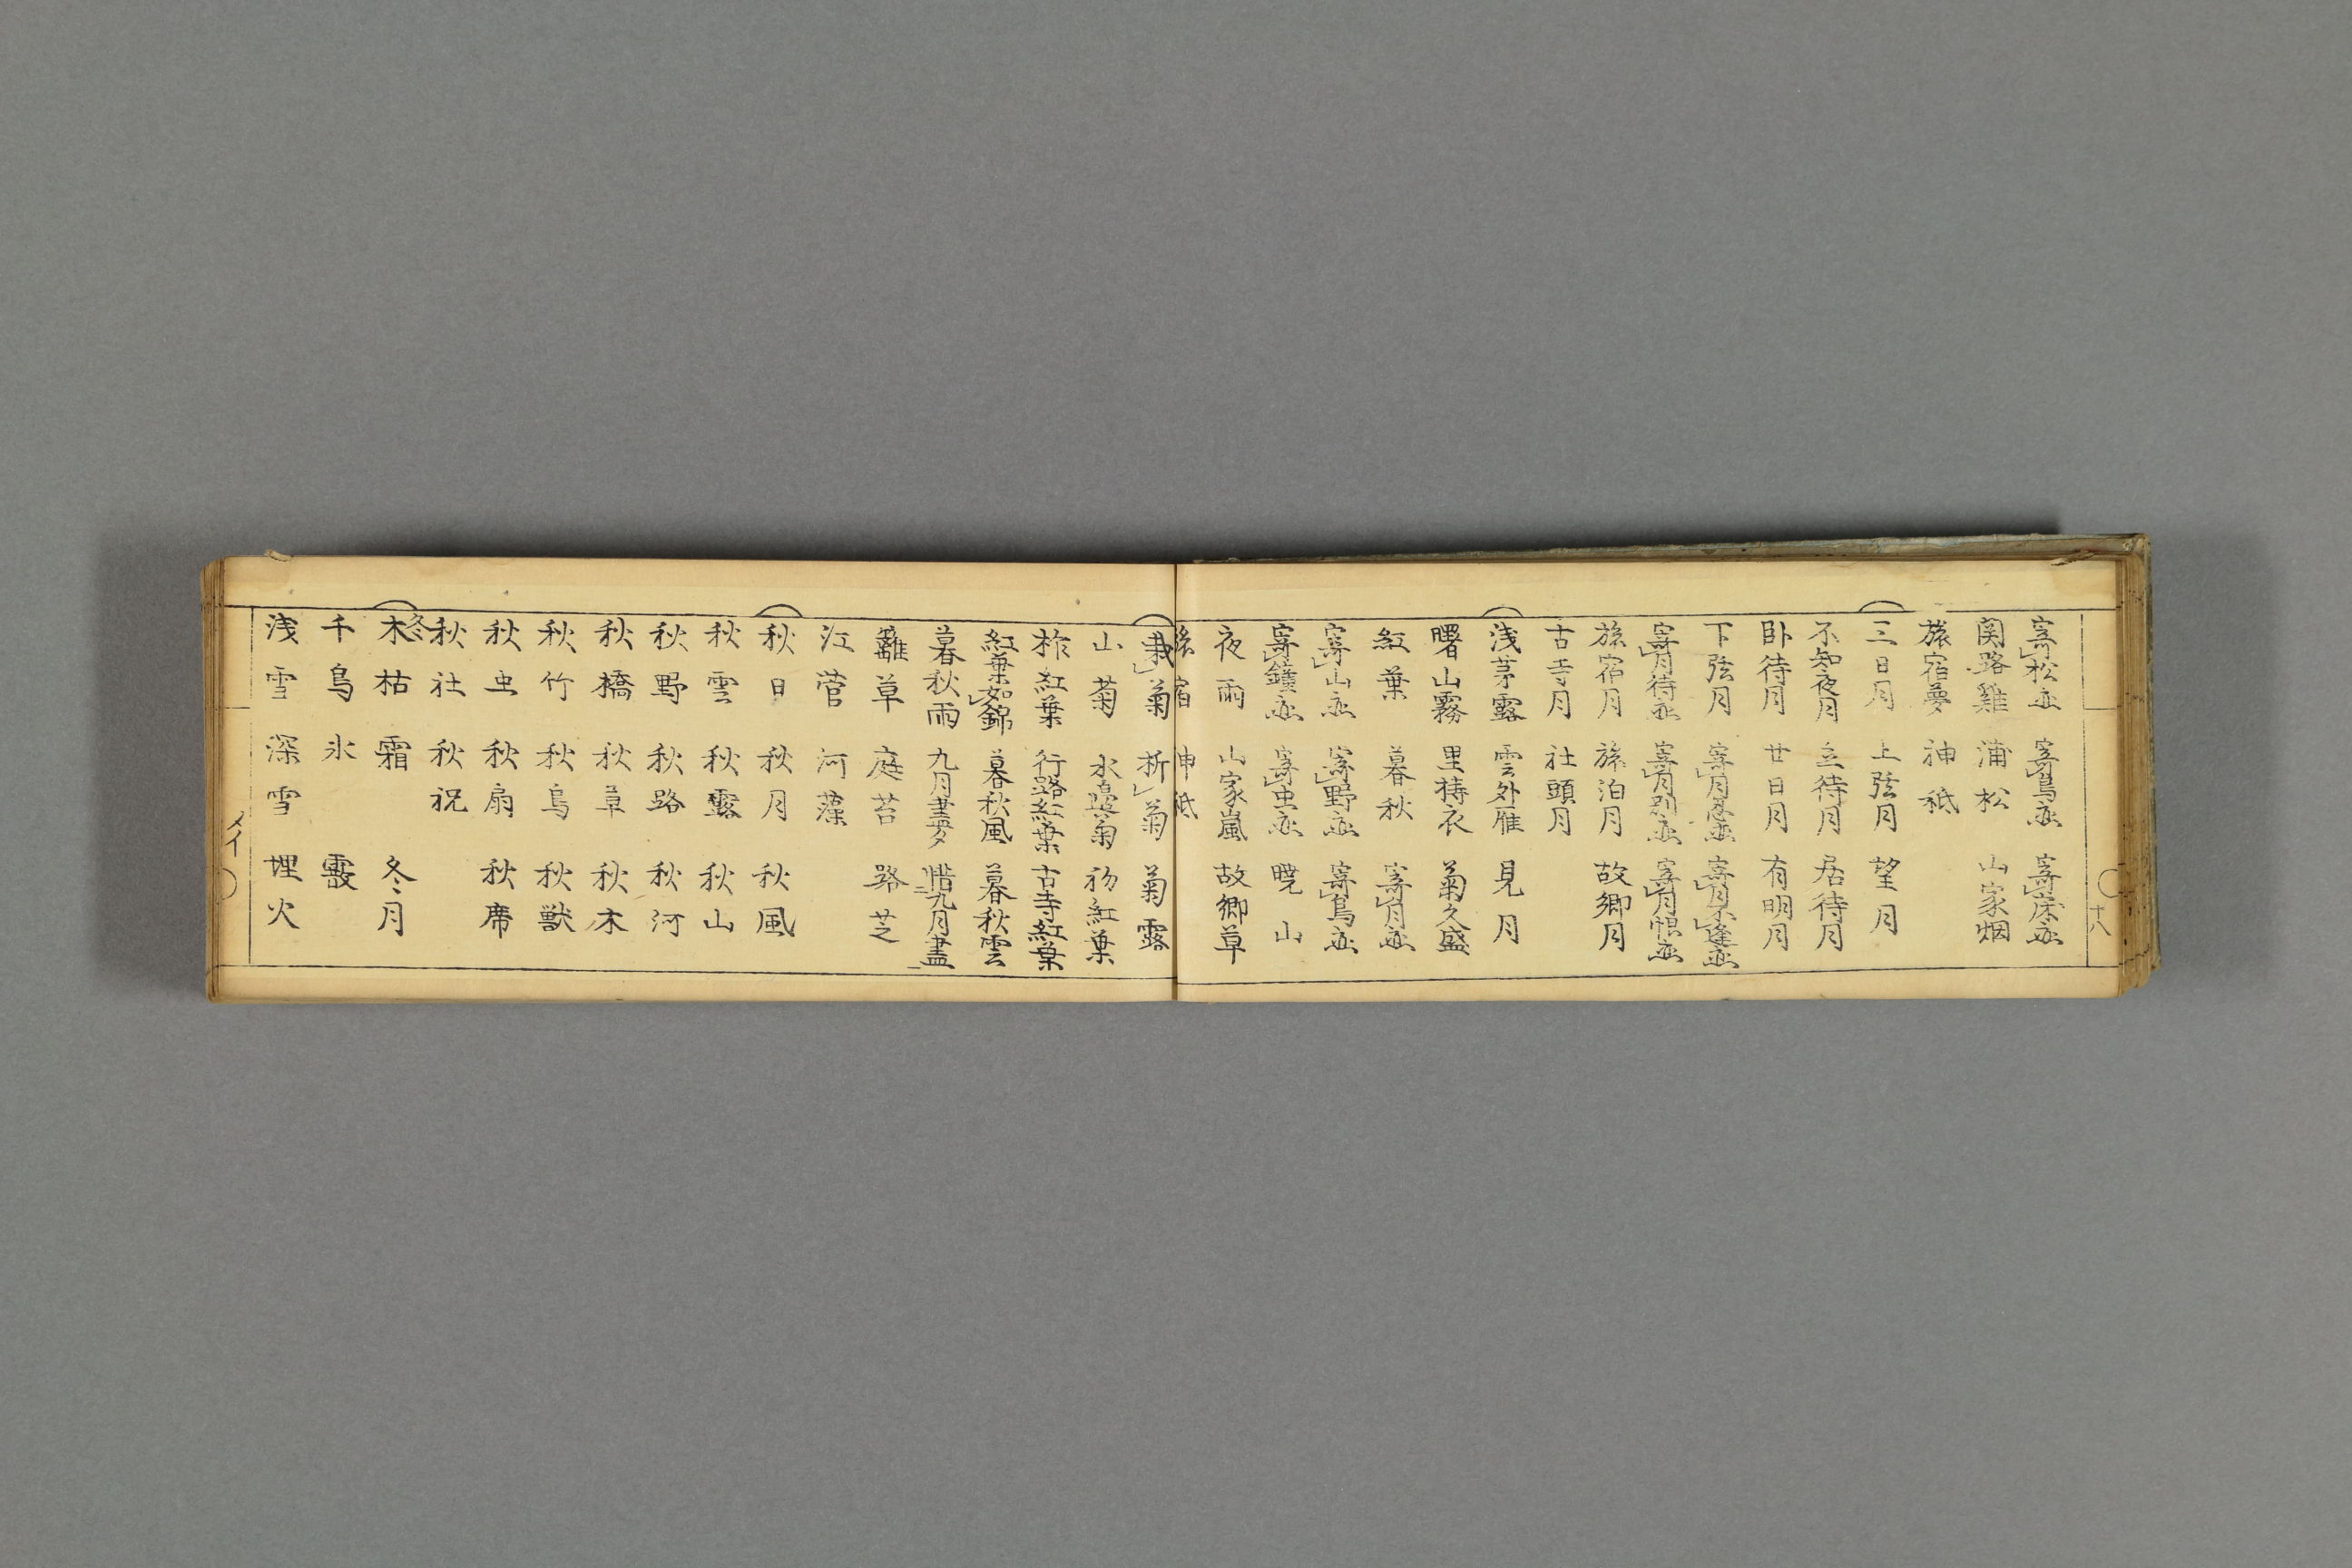 寄松恋 寄鳥恋 寄床恋
関路雞 浦松 山家烟
旅宿夢 神祇
三日月 上弦月 望月
不知夜月 立待月 居待月
卧待月 廿日月 有明月
下弦月 寄月忍恋 寄月不逢恋
寄月待恋 寄月別恋 寄月恨恋
旅宿月 旅泊月 故郷月
古寺月 社頭月
浅茅露 雲外雁 見月
曙山霧 里擣衣 菊久盛
紅葉 暮秋 寄月恋
寄山恋 寄野恋 寄鳥恋
寄鐘恋 寄虫恋 暁山
夜雨 山家嵐 故郷草
旅宿 神祇
栽菊 折菊 菊露
山菊 水邊菊 初紅葉
柞紅葉 行路紅葉 古寺紅葉
紅葉如錦 暮秋風 暮秋雲
暮秋雨 九月盡夕 惜九月盡
籬草 庭苔 路芝
江菅 河藻
秋日 秋月 秋風
秋雲 秋露 秋山
秋野 秋路 秋河
秋橋 秋草 秋木
秋竹 秋鳥 秋獣
秋虫 秋扇 秋席
秋社 秋祝
冬
木枯 霜 冬月
千鳥 氷 霰
浅雪 深雪 埋火
十八
メイ